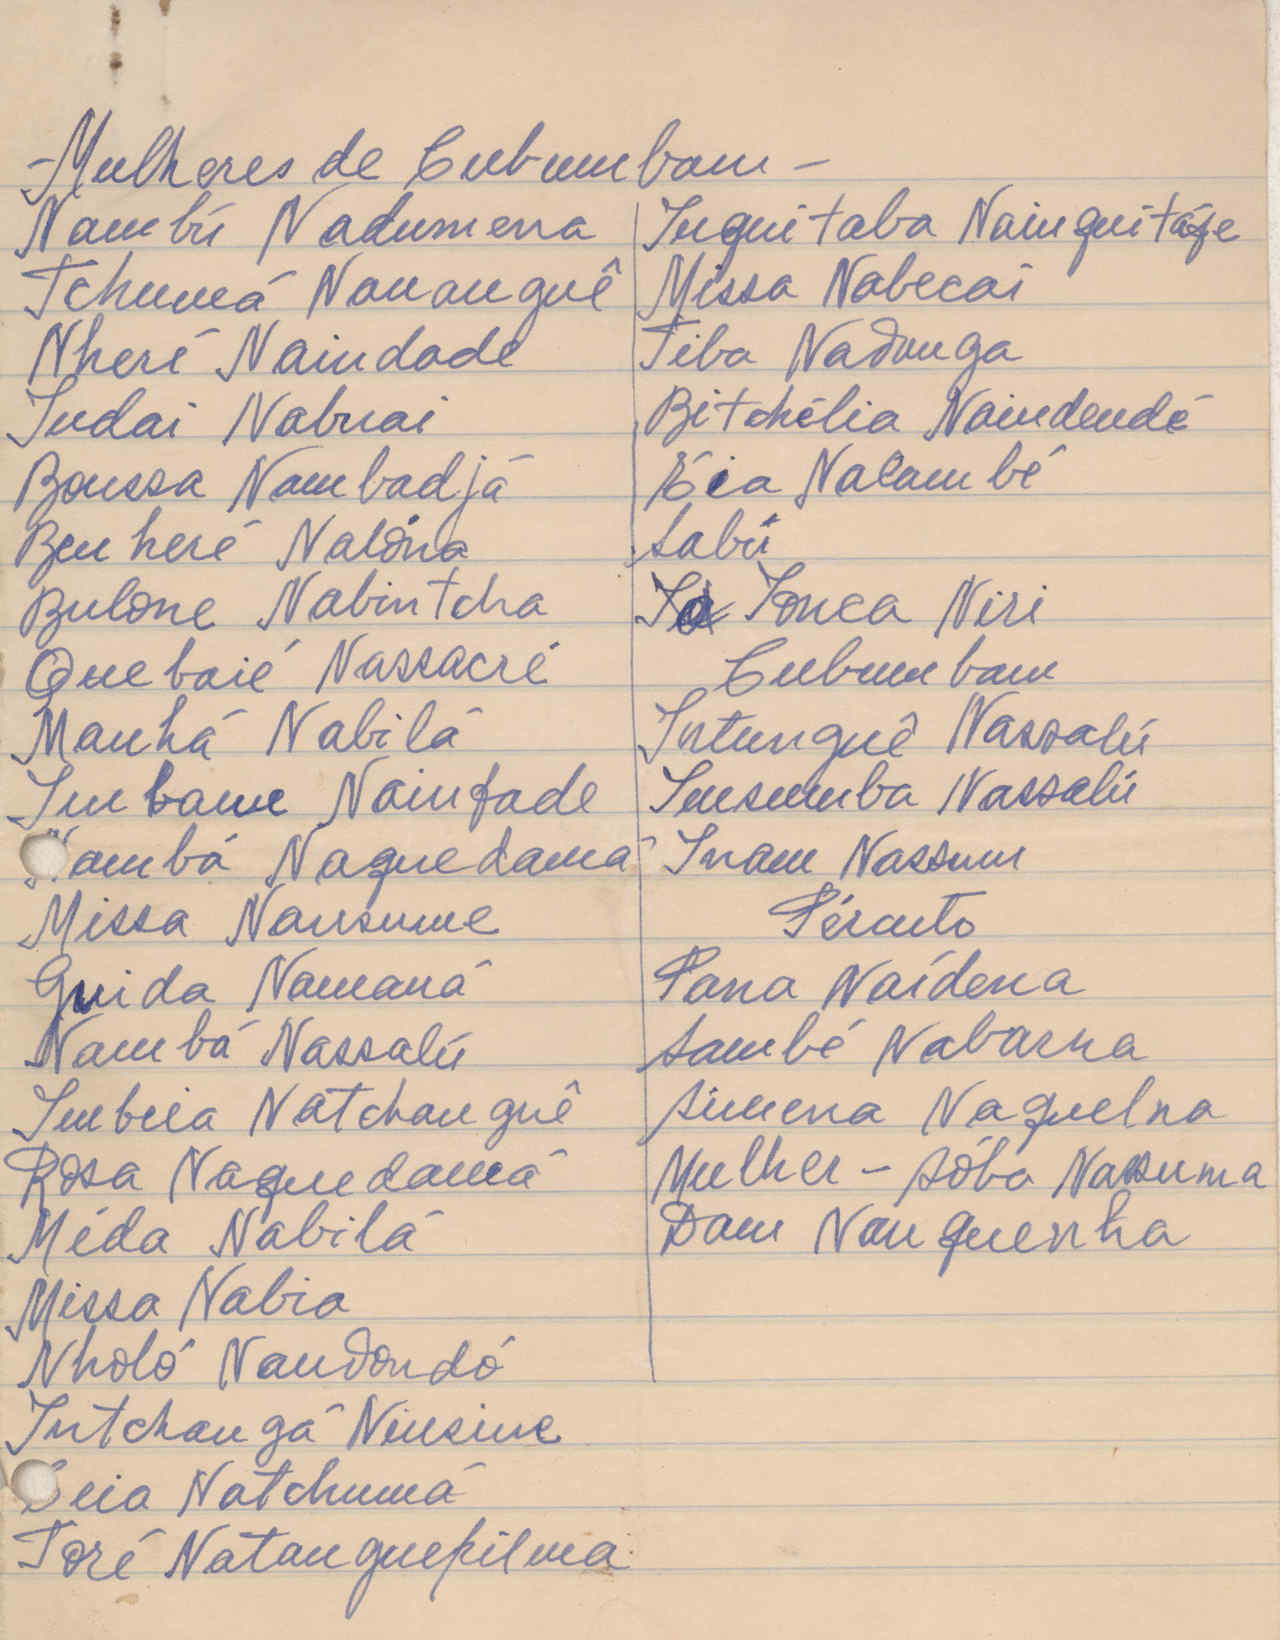 - Mulheres de Cubumbam -
Nambú Nadumena
Tchumá Nanangué
Nheré Naindade
Indai Nabuai
Boussa Nambadjá
Benheré Nalóna
Bulone Nabintcha
Quebaié Nassacré
Manhá Nabilá
Imbame Nainfade
Nambá Naquedamá
Missa Nansume
Guida Namaná
Nambá Nassalú
Natchanguê
Rosa Naquedamá
Méda Nabilá
Missa Nabia
Nholó Nandondó
Intchangá Ninsine
Natchumá
Toré Natanguepilma
Inquitaba
Missa Nabecai
Tiba Nadunga
Bitchélia Naindendé
Nalambé
Sabú
Jonca Niri
Cubumbam
Intunguê Nassalú
Insumba Nassalú
Inam Nassum
Péranto
Pana Naídena
Sambé Nabarna
Simena Naquelna
Mulher - Sóba Nassuma
Dam Nanquenha